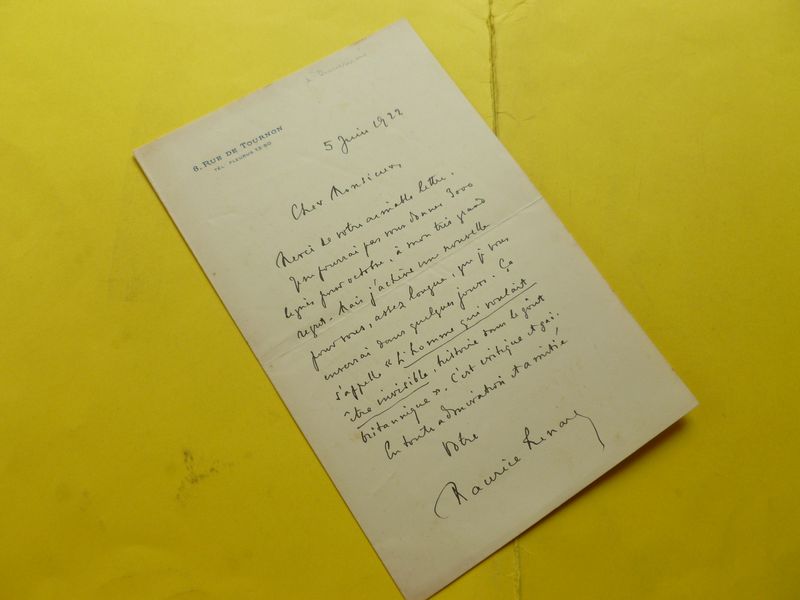 6, RUE DE TOURNON
TÉL. FLEURUS
5 Juin 1922
Cher Monsieur,
Merci de votre aimable lettre.
Je ne pourrai pas vous donner 3000
lignes pour octobre, à mon très grand
regret. Mais j'achève une nouvelle
pour vous, assez longue, que je vous
enverrai dans quelques jours. Ça
s'appelle « L'homme qui voulait
être invisible, histoire dans le goût
britannique ». C'est critique et gai.
En toute admiration et amitié
Votre
Maurice Renard